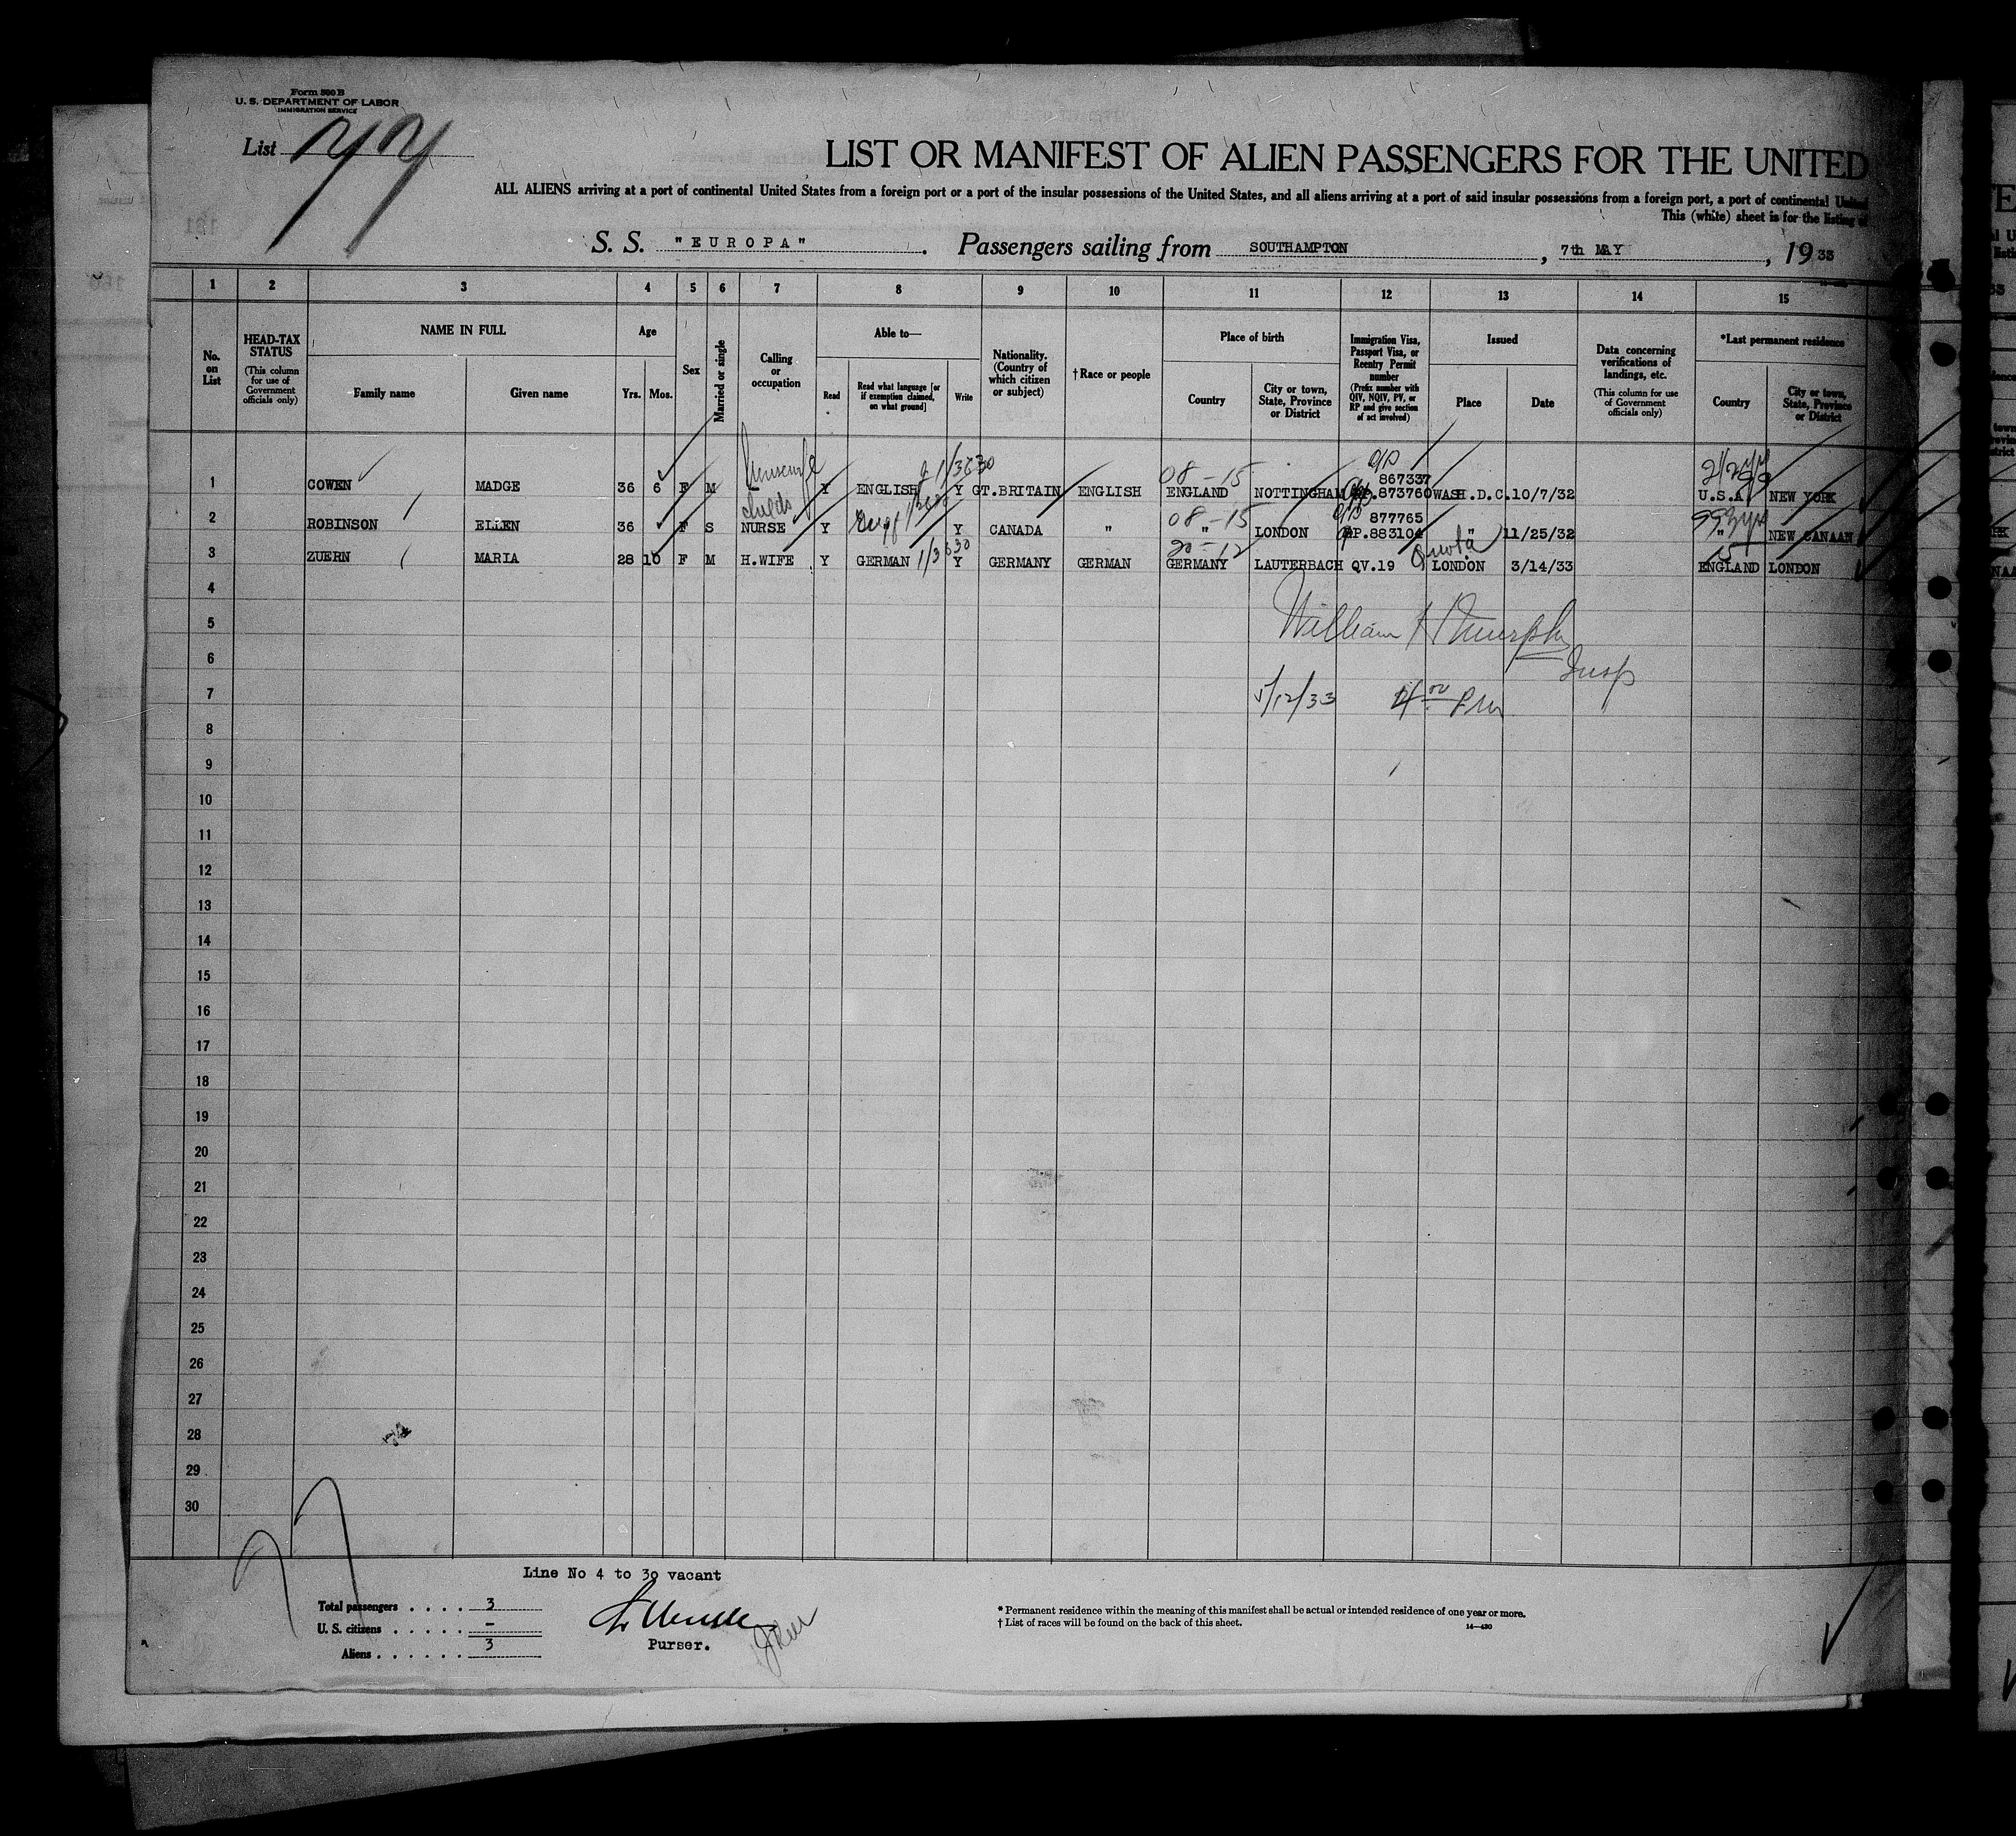 Form 500 B
U. S. DEPARTMENT OF LABOR
IMMIGRATION SERVICE
List
LIST OR MANIFEST OF ALIEN PASSENGERS FOR THE UNITED
ALL ALIENS arriving at a port of continental United States from a foreign port or a port of the insular possessions of the United States, and all aliens arriving at a port of said insular possessions from a foreign port, a port of continental United
This (white) sheet is for the listing of
S. S. "EUROPA". Passengers sailing from SOUTHAMPTON, 7th MAY, 1933
1 2 3 4 5 6 7 8 9 10 11 12 13 14 15
No. on List
HEAD-TAX STATUS (This column for use of Government officials only)
NAME IN FULL
Family name
Given name
Age
Yrs. Mos.
Sex
Married or single
Calling or occupation
Able to—
Read
Read what language [or if exemption claimed, on what ground]
Write
Nationality. (Country of which citizen or subject)
†Race or people
Place of birth
Country
City or town, State, Province or District
Immigration Visa, Passport Visa, or Reentry Permit number (Prefix number with QIV, NQIV, PV, or RP and give section of act involved)
Issued
Place
Date
Data concerning verifications of landings, etc. (This column for use of Government officials only)
*Last permanent residence
Country
City or town, State, Province or District
08-15 867337
1 COWEN MADGE 36 6 F M Y ENGLISH Y GT.BRITAIN ENGLISH ENGLAND NOTTINGHAM 873760 WASH.D.C. 10/7/32 U.S.A. NEW YORK
childs 08-15 877765
2 ROBINSON ELLEN 36 F S NURSE Y Y CANADA " " LONDON RP.883104 " 11/25/32 " NEW CANAAN
20-12 Quota
3 ZUERN MARIA 28 10 F M H.WIFE Y GERMAN Y GERMANY GERMAN GERMANY LAUTERBACH QV.19 LONDON 3/14/33 ENGLAND LONDON
4
5 William H Murphy
6 Insp
7 5/12/33 4 00 Pm
8
9
10
11
12
13
14
15
16
17
18
19
20
21
22
23
24
25
26
27
28
29
30
Line No 4 to 30 vacant
Total passengers . . . . 3
U. S. citizens . . . . . –
Aliens . . . . . . 3
Purser.
* Permanent residence within the meaning of this manifest shall be actual or intended residence of one year or more.
† List of races will be found on the back of this sheet.
14—430